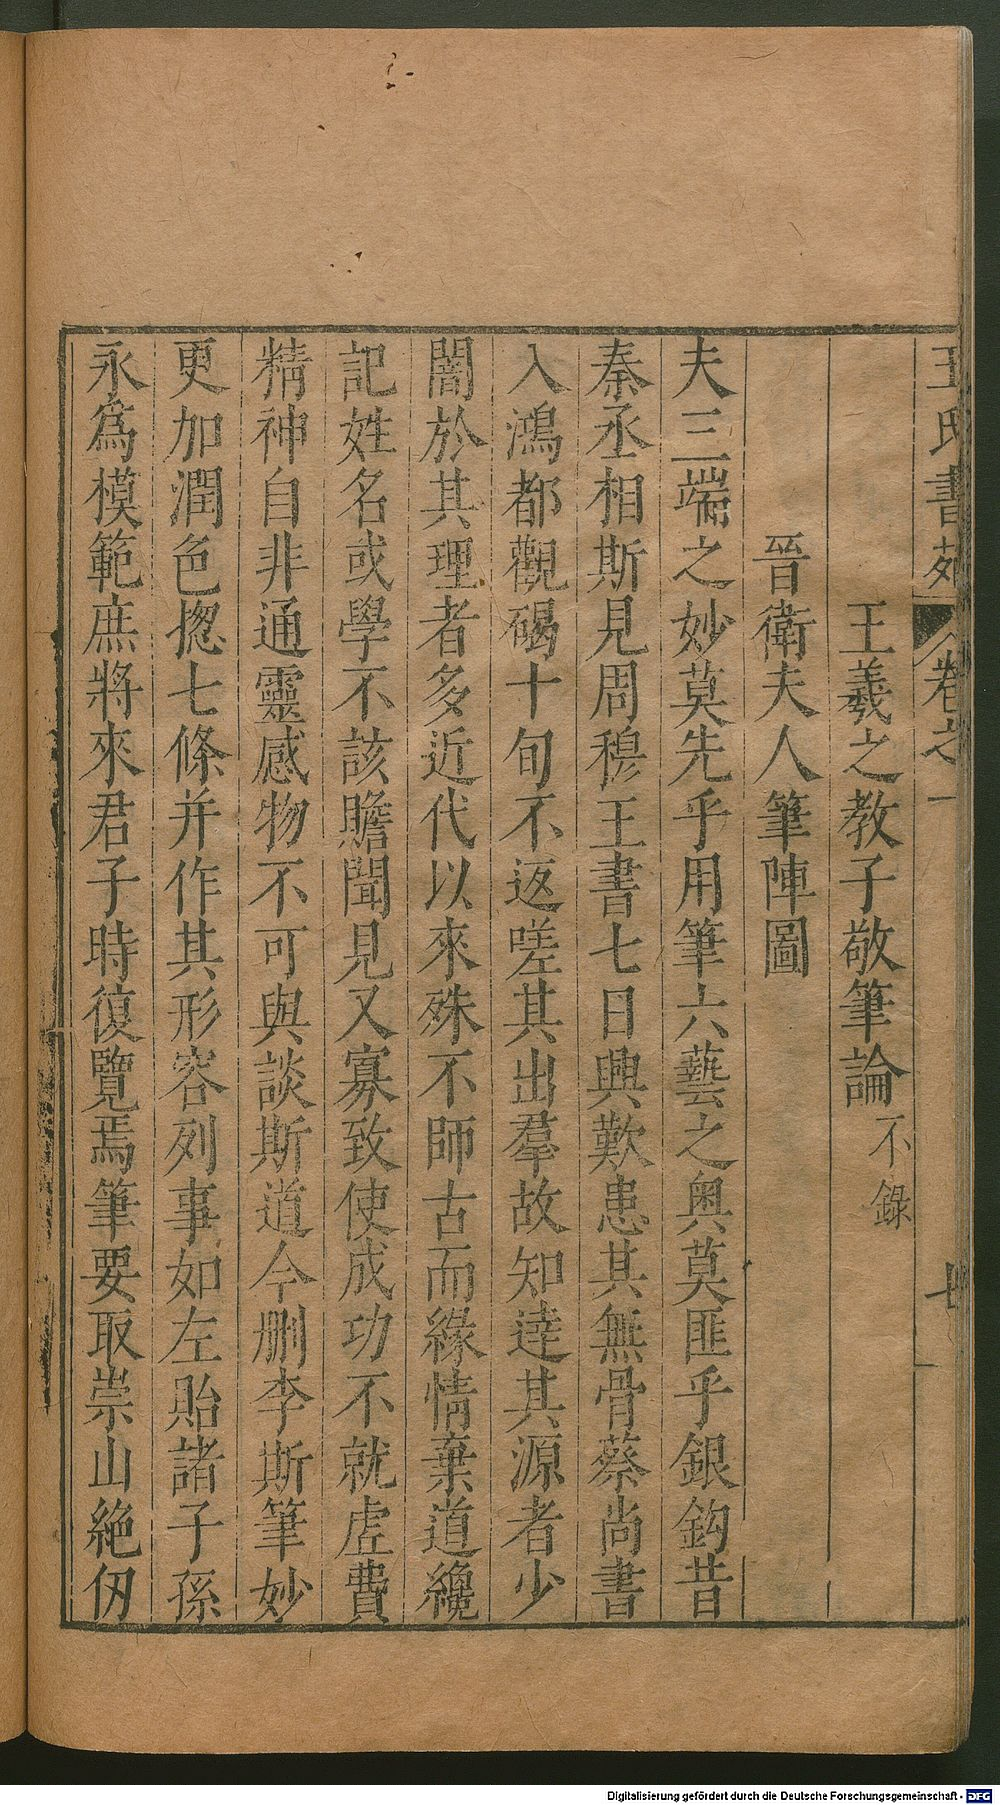 王氏書苑 卷之一 七
王羲之教子敬筆論不錄
晉衛夫人筆陣圖
夫三端之妙莫先乎用筆六藝之奥莫匪乎銀鈎昔
秦丞相斯見周穆王書七日興歎患其無骨蔡尚書
入鴻都觀碣十旬不返嗟其出羣故知達其源者少
闇於其理者多近代以來殊不師古而緣情棄道纔
記姓名或學不該贍聞見又寡致使成功不就虛費
精神自非通靈感物不可與談斯道今刪李斯筆妙
更加潤色揔七條并作其形容列事如左貽諸子孫
永爲模範庶將來君子時復覽焉筆要取崇山絕仞
Digitalisierung gefördert durch die Deutsche Forschungsgemeinschaft - DFG